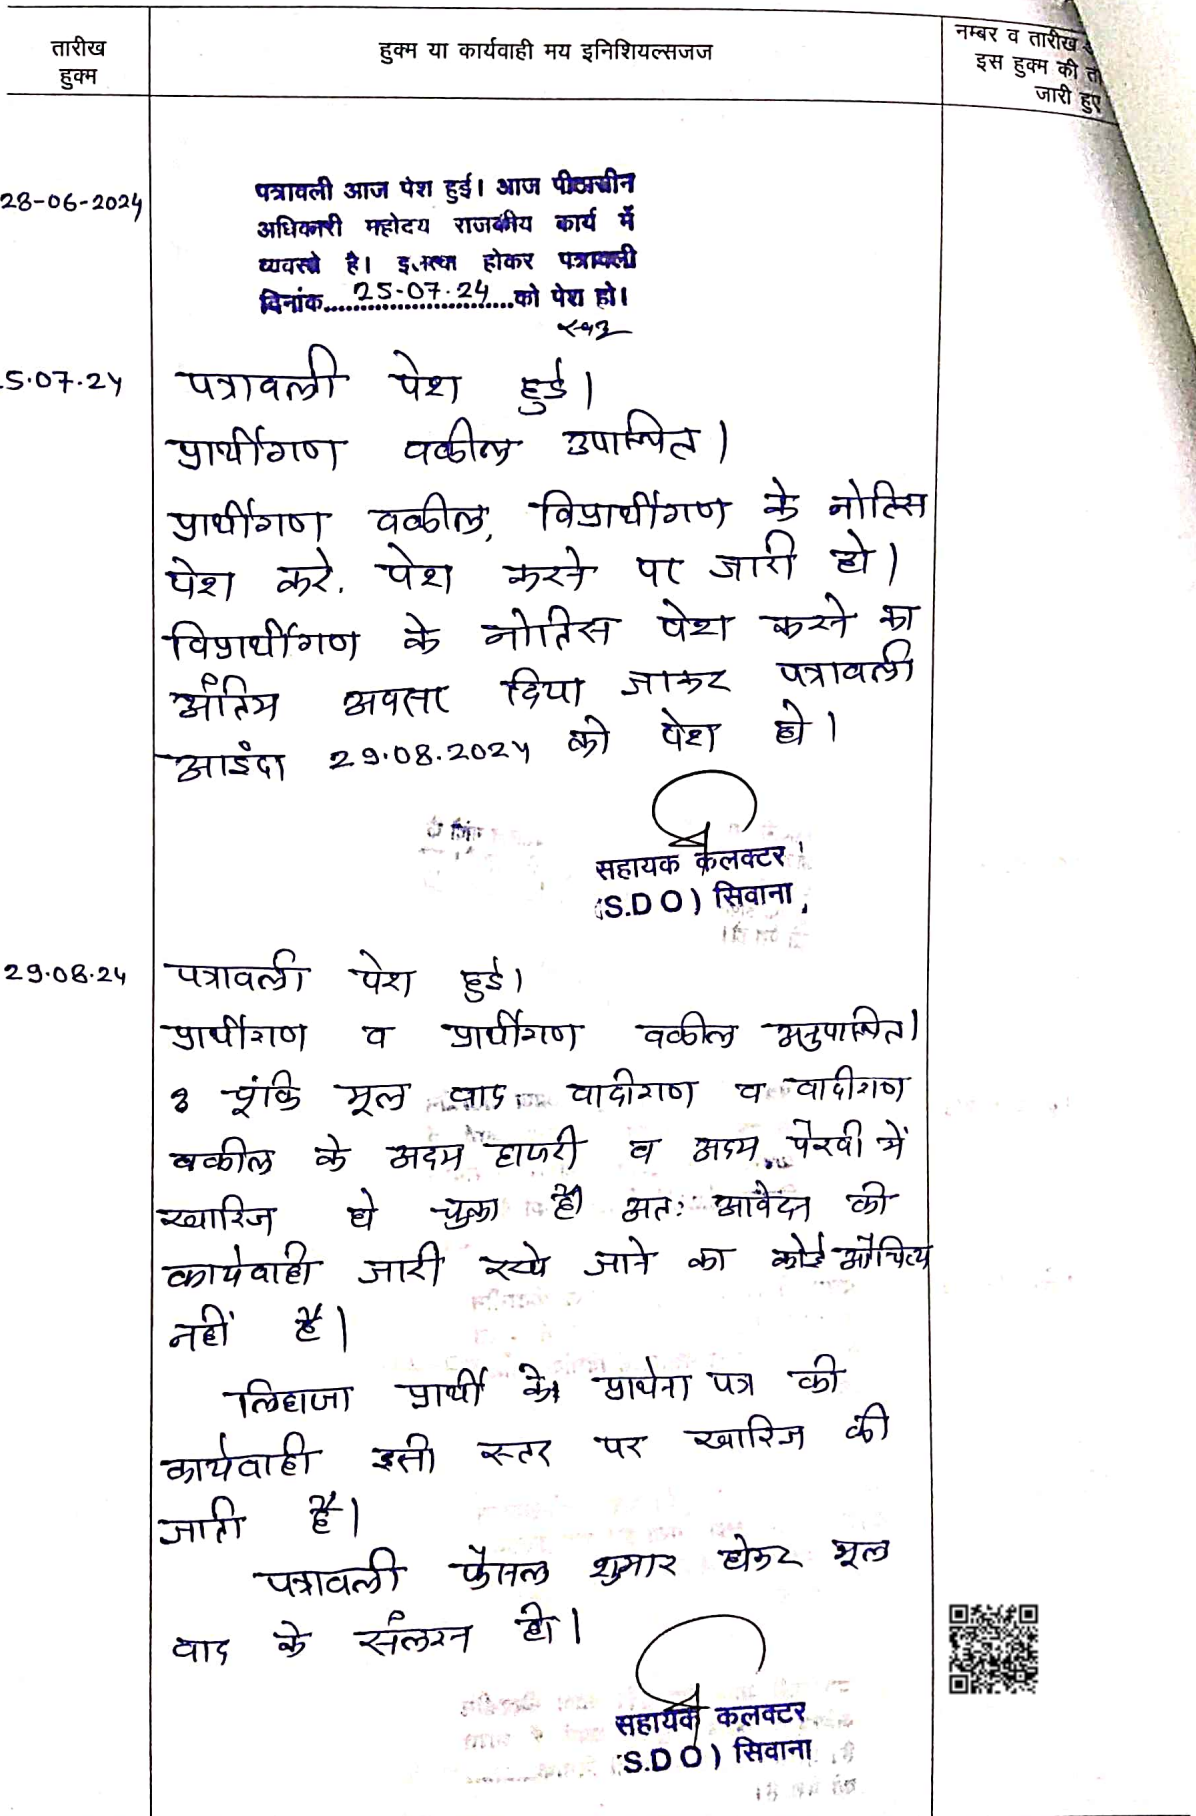 तारीख
हुक्म
हुक्म या कार्यवाही मय इनिशियल्सजज
नम्बर व तारीख
इस हुक्म की
जारी हुए
28-06-2024
पत्रावली आज पेश हुई। आज पीठासीन
अधिकारी महोदय राजकीय कार्य में
व्यवस्थ है। होकर पत्रावली
दिनांक....25-07-24....को पेश हो।
5.07.24
पत्रावली पेश हुई।
प्रार्थीगण वकील उपस्थित।
प्रार्थीगण वकील, विप्रार्थीगण के नोटिस
पेश करे. पेश करने पर जारी हो।
विप्रार्थीगण के नोटिस पेश करने का
अंतिम अवसर दिया जाकर पत्रावली
आइंदा 29.08.2024 को पेश हो।
सहायक कलक्टर
(S.D O) सिवाना
29.08.24
पत्रावली पेश हुई।
प्रार्थीगण व प्रार्थीगण वकील अनुपस्थित।
चूंकि मूल वाद वादीगण व वादीगण
वकील के अदम हाजरी व अदम पैरवी में
खारिज हो चुका है। अतः आवेदन की
कार्यवाही जारी रखे जाने का कोई औचित्य
नहीं है।
लिहाजा प्रार्थी के प्रार्थना पत्र की
कार्यवाही इसी स्तर पर खारिज की
जाती है।
पत्रावली फैसल शुमार होकर मूल
वाद के संलग्न हो।
सहायक कलक्टर
(S.D O) सिवाना